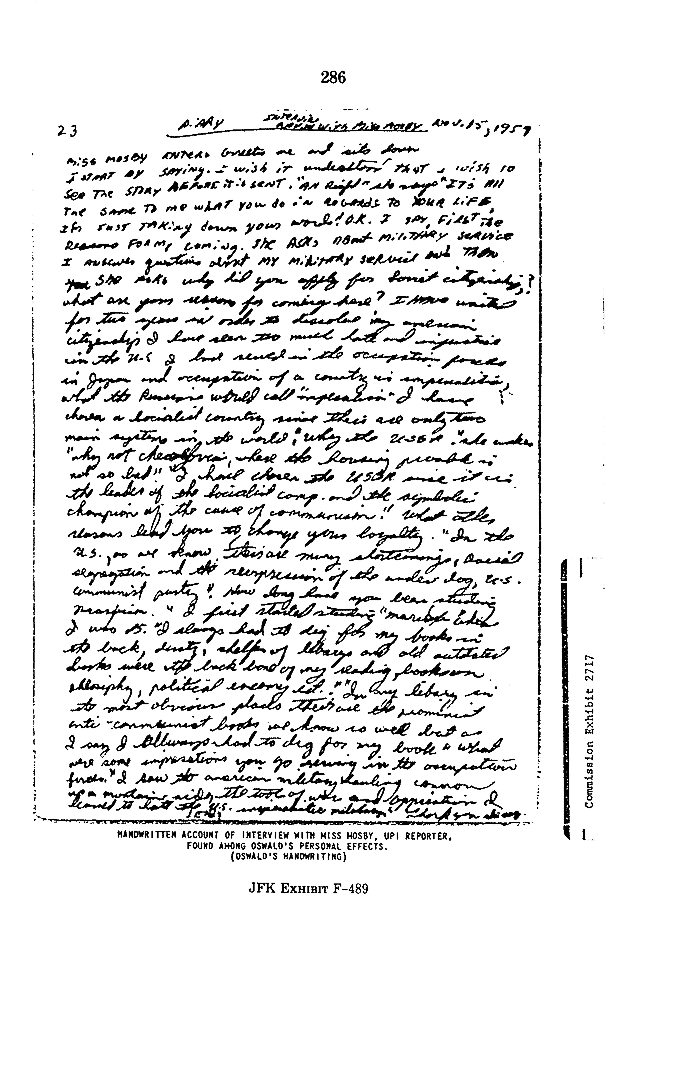 286
23 DIARY INTERVIEW WITH MISS MOSBY NOV. 15, 1959
Miss MOSBY ENTERS Greets me and sits down
I START BY SAYING. I wish it understood THAT I WISH TO
SEE THE STORY BEFORE IT IS SENT. "All Right" she says "ITS All
THE SAME TO ME WHAT YOU DO IN REGARDS TO YOUR LIFE,
Its JUST TAKING down your words! O.K. I SAY, FIRST the
Reasons FOR MY coming. SHE ASKS ABOUT MILITARY SERVICE
I ANSWER questions about MY MILITARY service and THEN
SHE ASKS why did you apply for Soviet citizenship?
what are your reasons for coming here? I HAVE waited
for two years in order to dissolve my american
citizenship I have seen too much hate and injustice
in the U.S I had served in the occupation forces
in Japan and occupation of a country is imperialistic,
what the Russians would call "imperialism" I have
chosen a Socialist country since there are only two
main systems in the world" Why the U.S.S.R? she asks
"why not , where the housing is
not so bad" "I have chosen the USSR since it is
the leader of the Socialist camp and the symbolic
champion of the cause of communism" What other
reasons lead you to change your loyalty. "In the
U.S., as we know there are many shortcomings, racial
segregation and the of the under dog, U.S.
communist party". How long have you been studying
" I first started studying when
I was 15. "I always had to dig for my books in
the back, dusty, shelfes of libarys and old outdated
books were the back bone of my reading, books on
, political ect." "In my libary in
the most obvious places there are the prominent
anti-communist books we know so well but as
I say I allways had to dig for my books " what
were some you serving in the occupation
forces." I saw the american military hauling cannon
up a mountain side, the tools of war and oppression I
learned to hate the U.S. imperialistic military" Thank you
HANDWRITTEN ACCOUNT OF INTERVIEW WITH MISS MOSBY, UPI REPORTER,
FOUND AMONG OSWALD'S PERSONAL EFFECTS.
(OSWALD'S HANDWRITING)
JFK EXHIBIT F-489
Commission Exhibit 2717
1